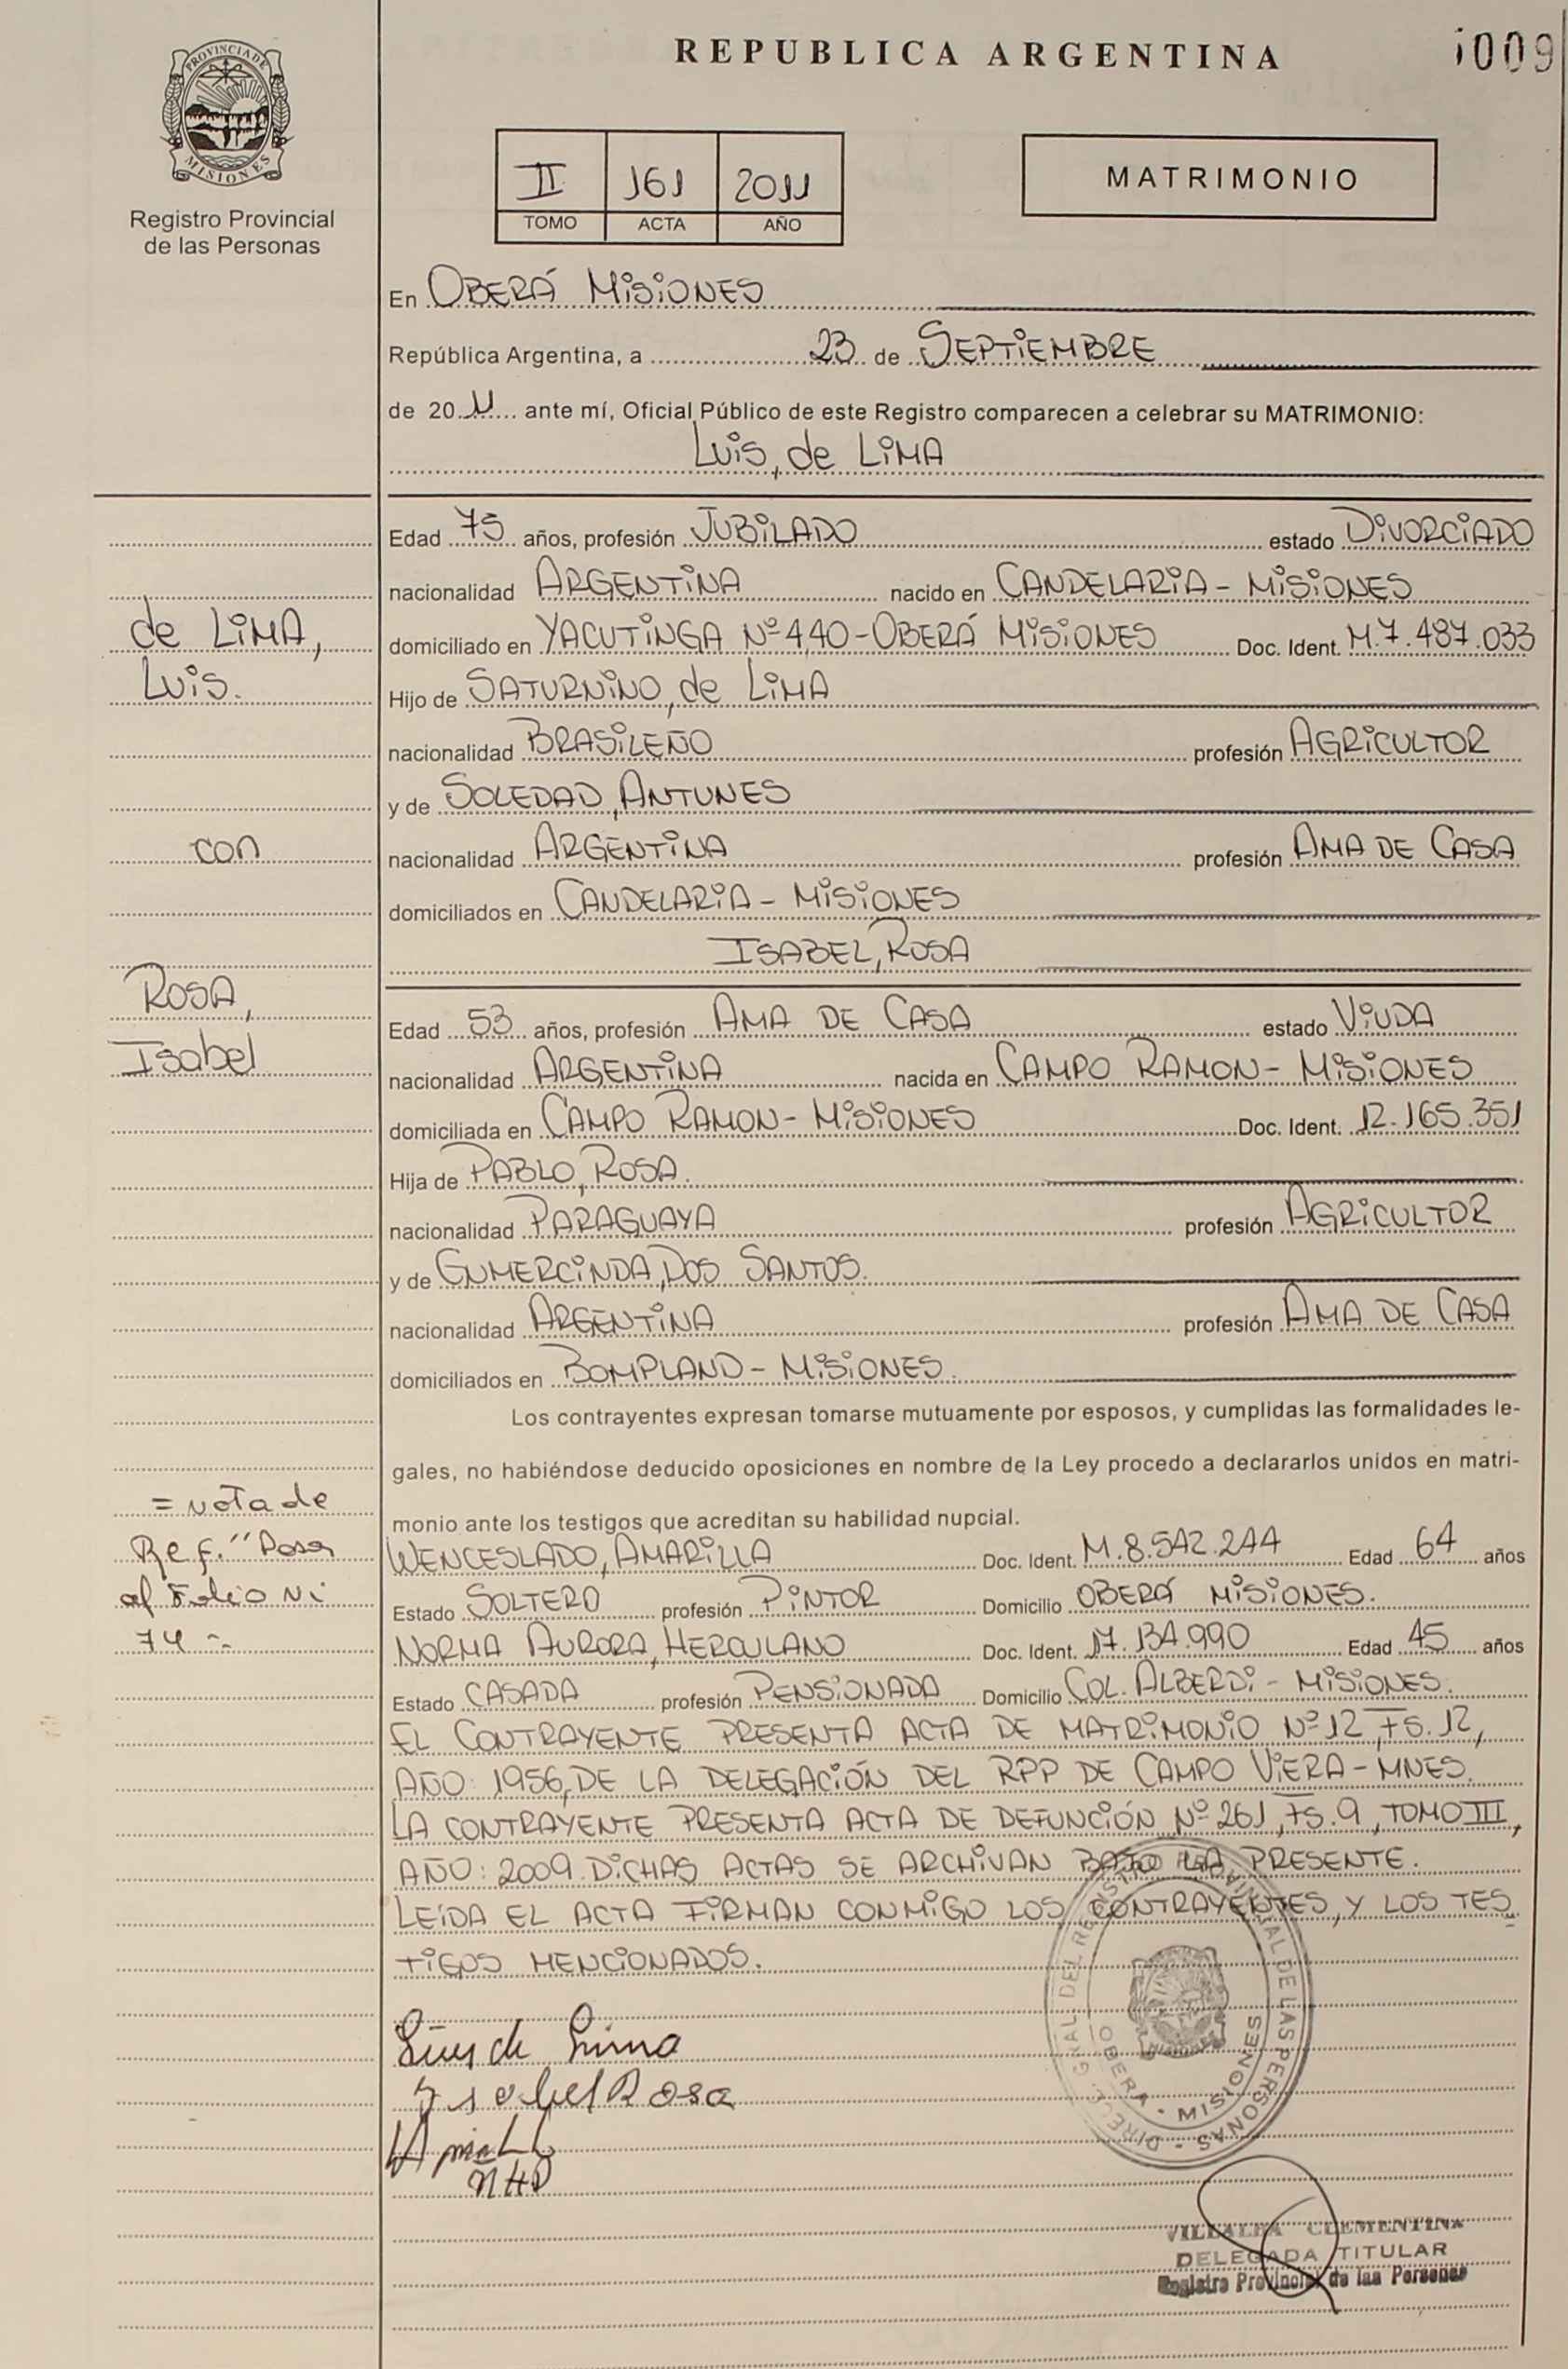 REPUBLICA ARGENTINA
1009
PROVINCIA DE
MISIONES
Registro Provincial
de las Personas
II 161 2011
TOMO ACTA AÑO
MATRIMONIO
En OBERÁ MISIONES
República Argentina, a 23 de SEPTIEMBRE
de 2011 ante mí, Oficial Público de este Registro comparecen a celebrar su MATRIMONIO:
LUIS, de LIMA
Edad 75 años, profesión JUBILADO estado DIVORCIADO
nacionalidad ARGENTINA nacido en CANDELARIA - MISIONES
de LIMA,
domiciliado en YACUTINGA Nº 440 - OBERÁ MISIONES Doc. Ident. M.7.487.033
LUIS.
Hijo de SATURNINO, de LIMA
nacionalidad BRASILEÑO profesión AGRICULTOR
y de SOLEDAD, ANTUNES
con
nacionalidad ARGENTINA profesión AMA DE CASA
domiciliados en CANDELARIA - MISIONES
ISABEL, ROSA
ROSA,
Edad 53 años, profesión AMA DE CASA estado VIUDA
Isabel
nacionalidad ARGENTINA nacida en CAMPO RAMON - MISIONES
domiciliada en CAMPO RAMON - MISIONES Doc. Ident. 12.165.351
Hija de PABLO, ROSA.
nacionalidad PARAGUAYA profesión AGRICULTOR
y de GUMERCINDA, DOS SANTOS.
nacionalidad ARGENTINA profesión AMA DE CASA
domiciliados en BOMPLAND - MISIONES.
Los contrayentes expresan tomarse mutuamente por esposos, y cumplidas las formalidades le-
gales, no habiéndose deducido oposiciones en nombre de la Ley procedo a declararlos unidos en matri-
monio ante los testigos que acreditan su habilidad nupcial.
= nota de
Ref. "Pasa
al Folio Nº
74
WENCESLADO, AMARILLA Doc. Ident. M.8.542.244 Edad 64 años
Estado SOLTERO profesión PINTOR Domicilio OBERÁ MISIONES.
NORMA AURORA, HERCULANO Doc. Ident. 17.134.990 Edad 45 años
Estado CASADA profesión PENSIONADA Domicilio COL. ALBERDI - MISIONES.
EL CONTRAYENTE PRESENTA ACTA DE MATRIMONIO Nº 12, FS. 12,
AÑO: 1956, DE LA DELEGACIÓN DEL RPP DE CAMPO VIERA - MNES.
LA CONTRAYENTE PRESENTA ACTA DE DEFUNCIÓN Nº 261, FS. 9, TOMO III,
AÑO: 2009. DICHAS ACTAS SE ARCHIVAN BAJO LA PRESENTE.
LEÍDA EL ACTA FIRMAN CONMIGO LOS CONTRAYENTES, Y LOS TES
TIGOS MENCIONADOS.
Luis de Lima
Isabel Rosa
NHD
DIRECC. GRAL. DEL REGISTRO PROVINCIAL DE LAS PERSONAS -
OBERA - MISIONES
VILLALBA CLEMENTINA
DELEGADA TITULAR
Registro Provincial de las Personas